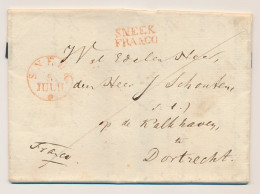 SNEEK
FRANCO
SNEEK
JULIJ
Wel Edelen Heer,
den Heer J Schouten
s. t.)
op de Kalkhaven,
te
Franco
Dortrecht.